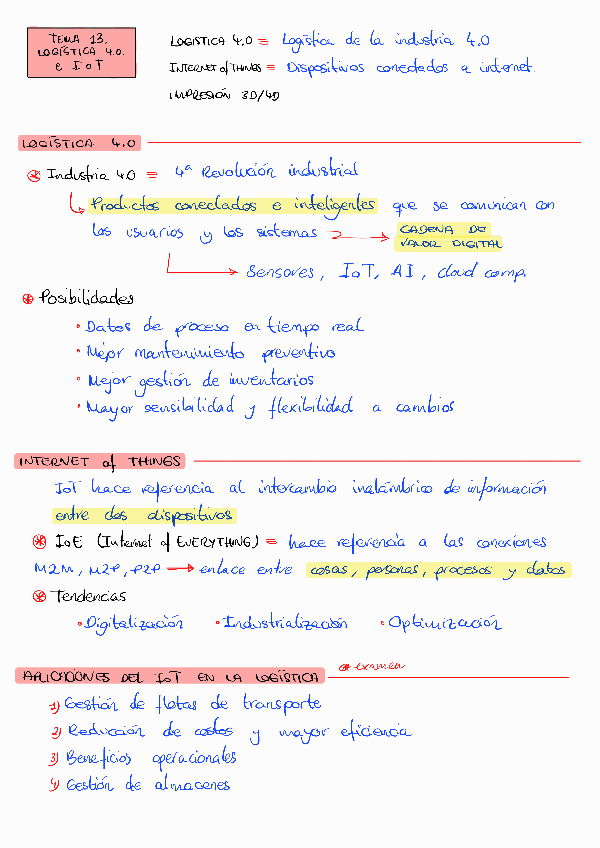 TEMA 13.
LOGÍSTICA 4.0.
e IoT
LOGISTICA 4.0 = Logística de la industria 4.0
INTERNET of THINGS = Dispositivos conectados a internet.
IMPRESIÓN 3D/4D
LOGÍSTICA 4.0
Industria 4.0 = 4ª Revolución industrial
Productos conectados e inteligentes que se comunican con
los usuarios y los sistemas → CADENA DE
VALOR DIGITAL
Sensores, IoT, AI, cloud comp.
Posibilidades
• Datos de proceso en tiempo real
• Mejor mantenimiento preventivo
• Mejor gestión de inventarios
• Mayor sensibilidad y flexibilidad a cambios
INTERNET of THINGS
IoT hace referencia al intercambio inalámbrico de información
entre dos dispositivos
IoE (Internet of EVERYTHING) = hace referencia a las conexiones
M2M, M2P, P2P → enlace entre cosas, personas, procesos y datos
Tendencias
• Digitalización • Industrialización • Optimización
APLICACIONES DEL IoT EN LA LOGÍSTICA
examen
1) Gestión de flotas de transporte
2) Reducción de costes y mayor eficiencia
3) Beneficios operacionales
4) Gestión de almacenes